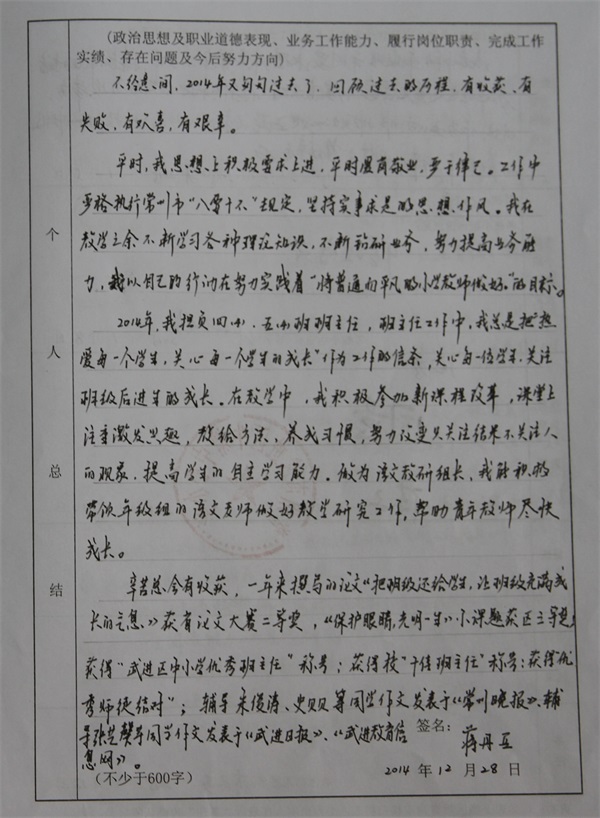 (政治思想及职业道德表现、业务工作能力、履行岗位职责、完成工作
实绩、存在问题及今后努力方向)
不经意间，2014年又匆匆过去了，回顾过去的历程，有收获、有
失败，有欢喜，有艰辛。
平时，我思想上积极要求上进，平时爱岗敬业，严于律己。工作中
严格执行常州市“八要十不”规定，坚持实事求是的思想作风。我在
教学之余不断学习各种理论知识，不断钻研业务，努力提高业务能
力，我以自己的行动在努力实践着“将普通而平凡的小学教师做好。”的目标。
2014年，我担负四(1)、五(1)班班主任，班主任工作中，我总是把“热
爱每一个学生，关心每一个学生的成长”作为工作的信条，关心每一位学生，关注
班级后进生的成长。在教学中，我积极参加新课程改革，课堂上
注重激发兴趣，教给方法，养成习惯，努力改变只关注结果不关注人
的现象，提高学生的自主学习能力。做为语文教研组长，我能积极
带领年级组的语文老师做好教学研究工作，帮助青年教师尽快
成长。
辛苦总会有收获，一年来撰写的论文《把班级还给学生，让班级充满成
长的气息》获省论文大赛二等奖，《保护眼睛，光明一生》小课题获区三等奖；
获得“武进区中小学优秀班主任”称号；获得校“十佳班主任”称号；获得“优
秀师徒结对”；辅导朱俊涛、史贝贝等同学作文发表于《常州晚报》、辅
导张芝馨等同学作文发表于《武进日报》、《武进教育信
息网》。
签名：
蒋丹亚
(不少于600字)
2014 年 12 月 28 日
个
人
总
结